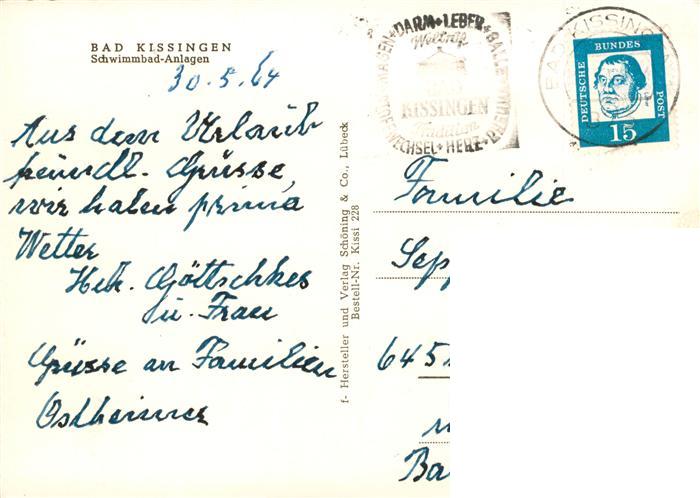 BAD KISSINGEN
Schwimmbad-Anlagen
30.5.64
Aus dem Urlaub
freundl. Grüsse,
wir haben prima
Wetter
Göttschkes
u. Frau
Grüsse an Familien
Ostheimer
f- Hersteller und Verlag Schöning & Co., Lübeck
Bestell-Nr. Kissi 228
DARM • LEBER • GALLE
Weltbad
KISSINGEN
HERZ
BAD KISSINGEN
DEUTSCHE BUNDES POST
15
Familie
Sep
645
Ba